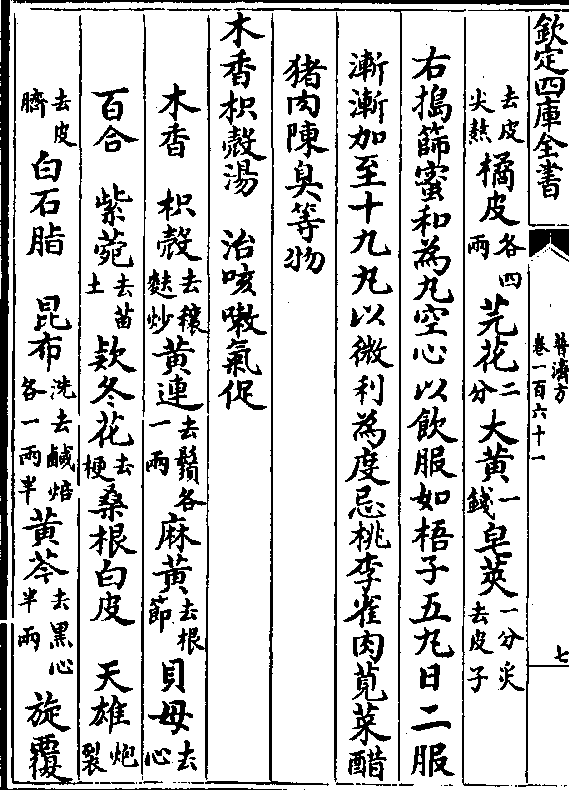 欽定四庫全書
普濟方
卷一百六十一
七
去皮尖熬橘皮各四兩芫花二分大黄一錢皂莢一分炙去皮子
右搗篩蜜和為丸空心以飲服如梧子五丸日二服
漸漸加至十九丸以微利為度忌桃李雀肉莧菜醋
猪肉陳臭等物
木香枳殼湯　治咳嗽氣促
木香　枳殼去穰麩炒黄連去鬚各一兩麻黄去根節貝母去心
百合　紫菀去苗土欵冬花去梗桑根白皮　天雄炮裂
去皮臍白石脂　昆布洗去鹹焙各一兩半黄芩去黑心半兩　旋覆